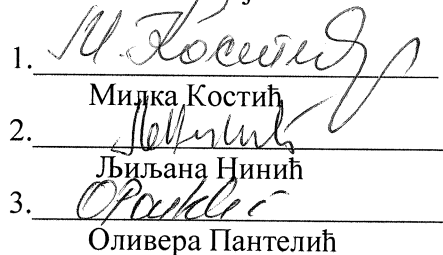 1. М. Костић
Милка Костић
2.
Љиљана Нинић
3.
Оливера Пантелић